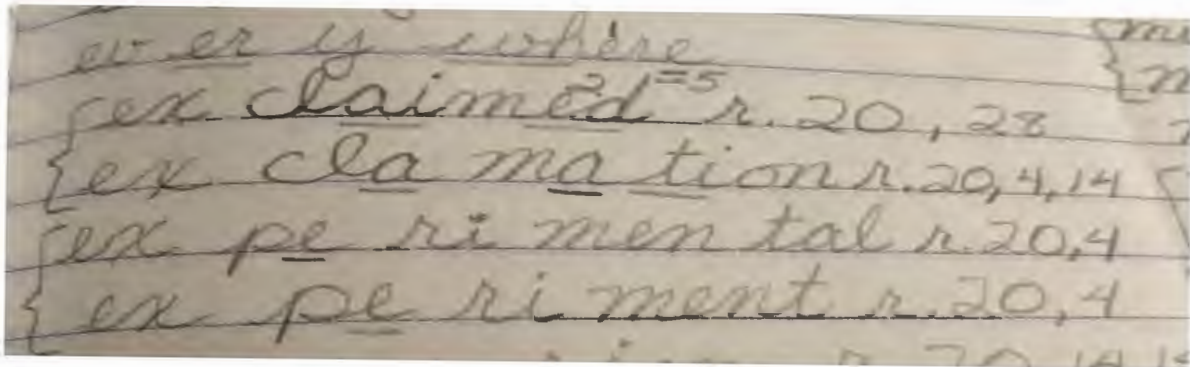 ev er y where
ex claimed ²⁼⁵ r. 20, 28
ex cla ma tion r. 20, 4, 14
ex pe ri men tal r. 20, 4
ex pe ri ment r. 20, 4